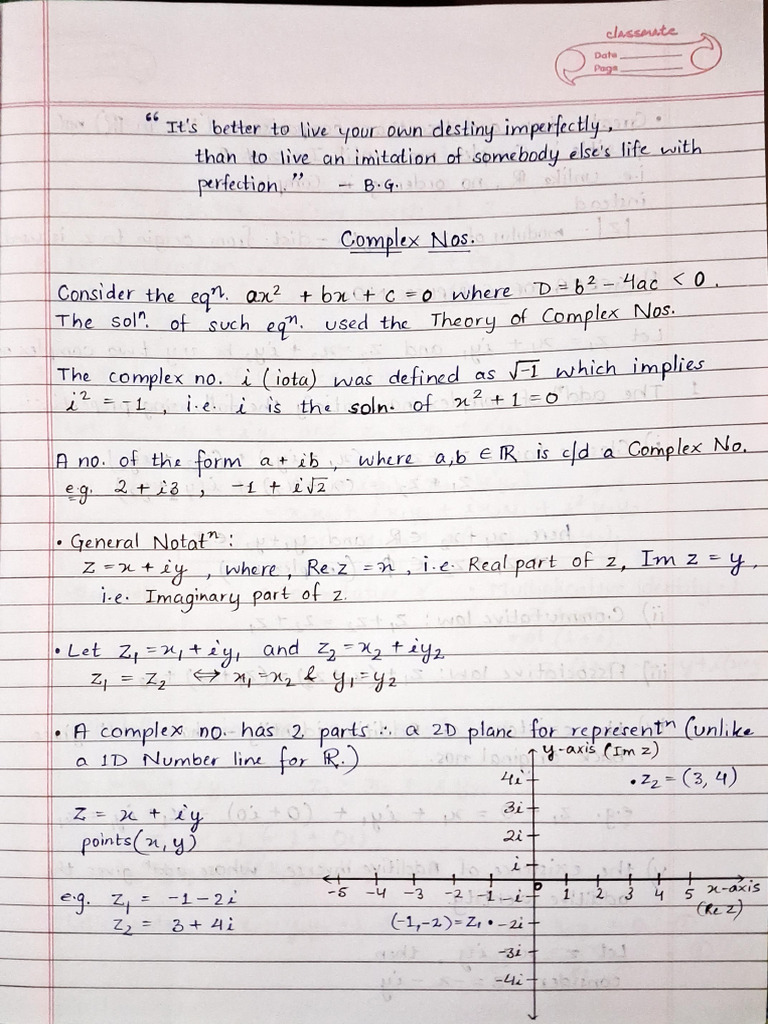 classmate
Date
Page
"It's better to live your own destiny imperfectly,
than to live an imitation of somebody else's life with
perfection." - B.G.
Complex Nos.
Consider the eqⁿ. ax² + bx + c = 0 where D = b² - 4ac < 0.
The solⁿ. of such eqⁿ. used the Theory of Complex Nos.
The complex no. i (iota) was defined as √-1 which implies
i² = -1, i.e. i is the soln. of x² + 1 = 0
A no. of the form a + ib, where a, b ∈ ℝ is c/d a Complex No.
e.g. 2 + i3, -1 + i√2
• General Notatⁿ:
z = x + iy, where, Re z = x, i.e. Real part of z, Im z = y,
i.e. Imaginary part of z.
• Let z₁ = x₁ + iy₁ and z₂ = x₂ + iy₂
z₁ = z₂ ⇔ x₁ = x₂ & y₁ = y₂
• A complex no. has 2 parts ∴ a 2D plane for representⁿ (unlike
a 1D Number line for ℝ.)
z = x + iy
points (x, y)
e.g. z₁ = -1 - 2i
z₂ = 3 + 4i
y-axis (Im z)
4i
• z₂ = (3, 4)
3i
2i
i
-5 -4 -3 -2 -1 0 1 2 3 4 5 x-axis
(Re z)
-i
(-1, -2) = z₁ • -2i
-3i
-4i